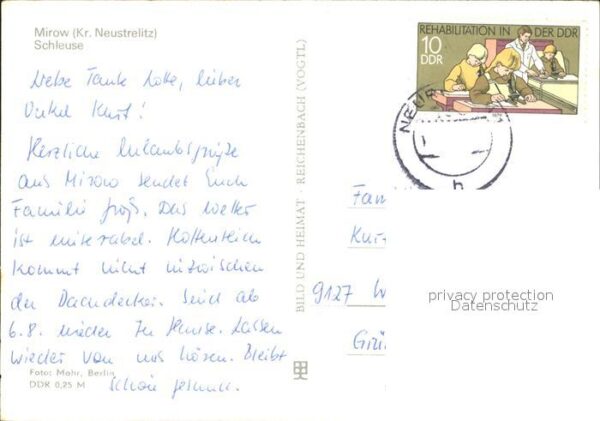 Mirow (Kr. Neustrelitz)
Schleuse
Liebe Tante Lotte, lieber
Onkel Kurt!
Herzliche Urlaubsgrüße
aus Mirow sendet Euch
Familie Groß. Das Wetter
ist miserabel. Hoffentlich
kommt nicht inzwischen
der Dachdecker. Sind ab
6.8. wieder zu Hause. Lassen
wieder von uns hören. Bleibt
schön gesund.
Foto: Mohr, Berlin
DDR 0,25 M
BILD UND HEIMAT · REICHENBACH (VOGTL)
REHABILITATION IN DER DDR
10
DDR
NEUS
h
Fam
Kur
9127 W
Grün
privacy protection
Datenschutz